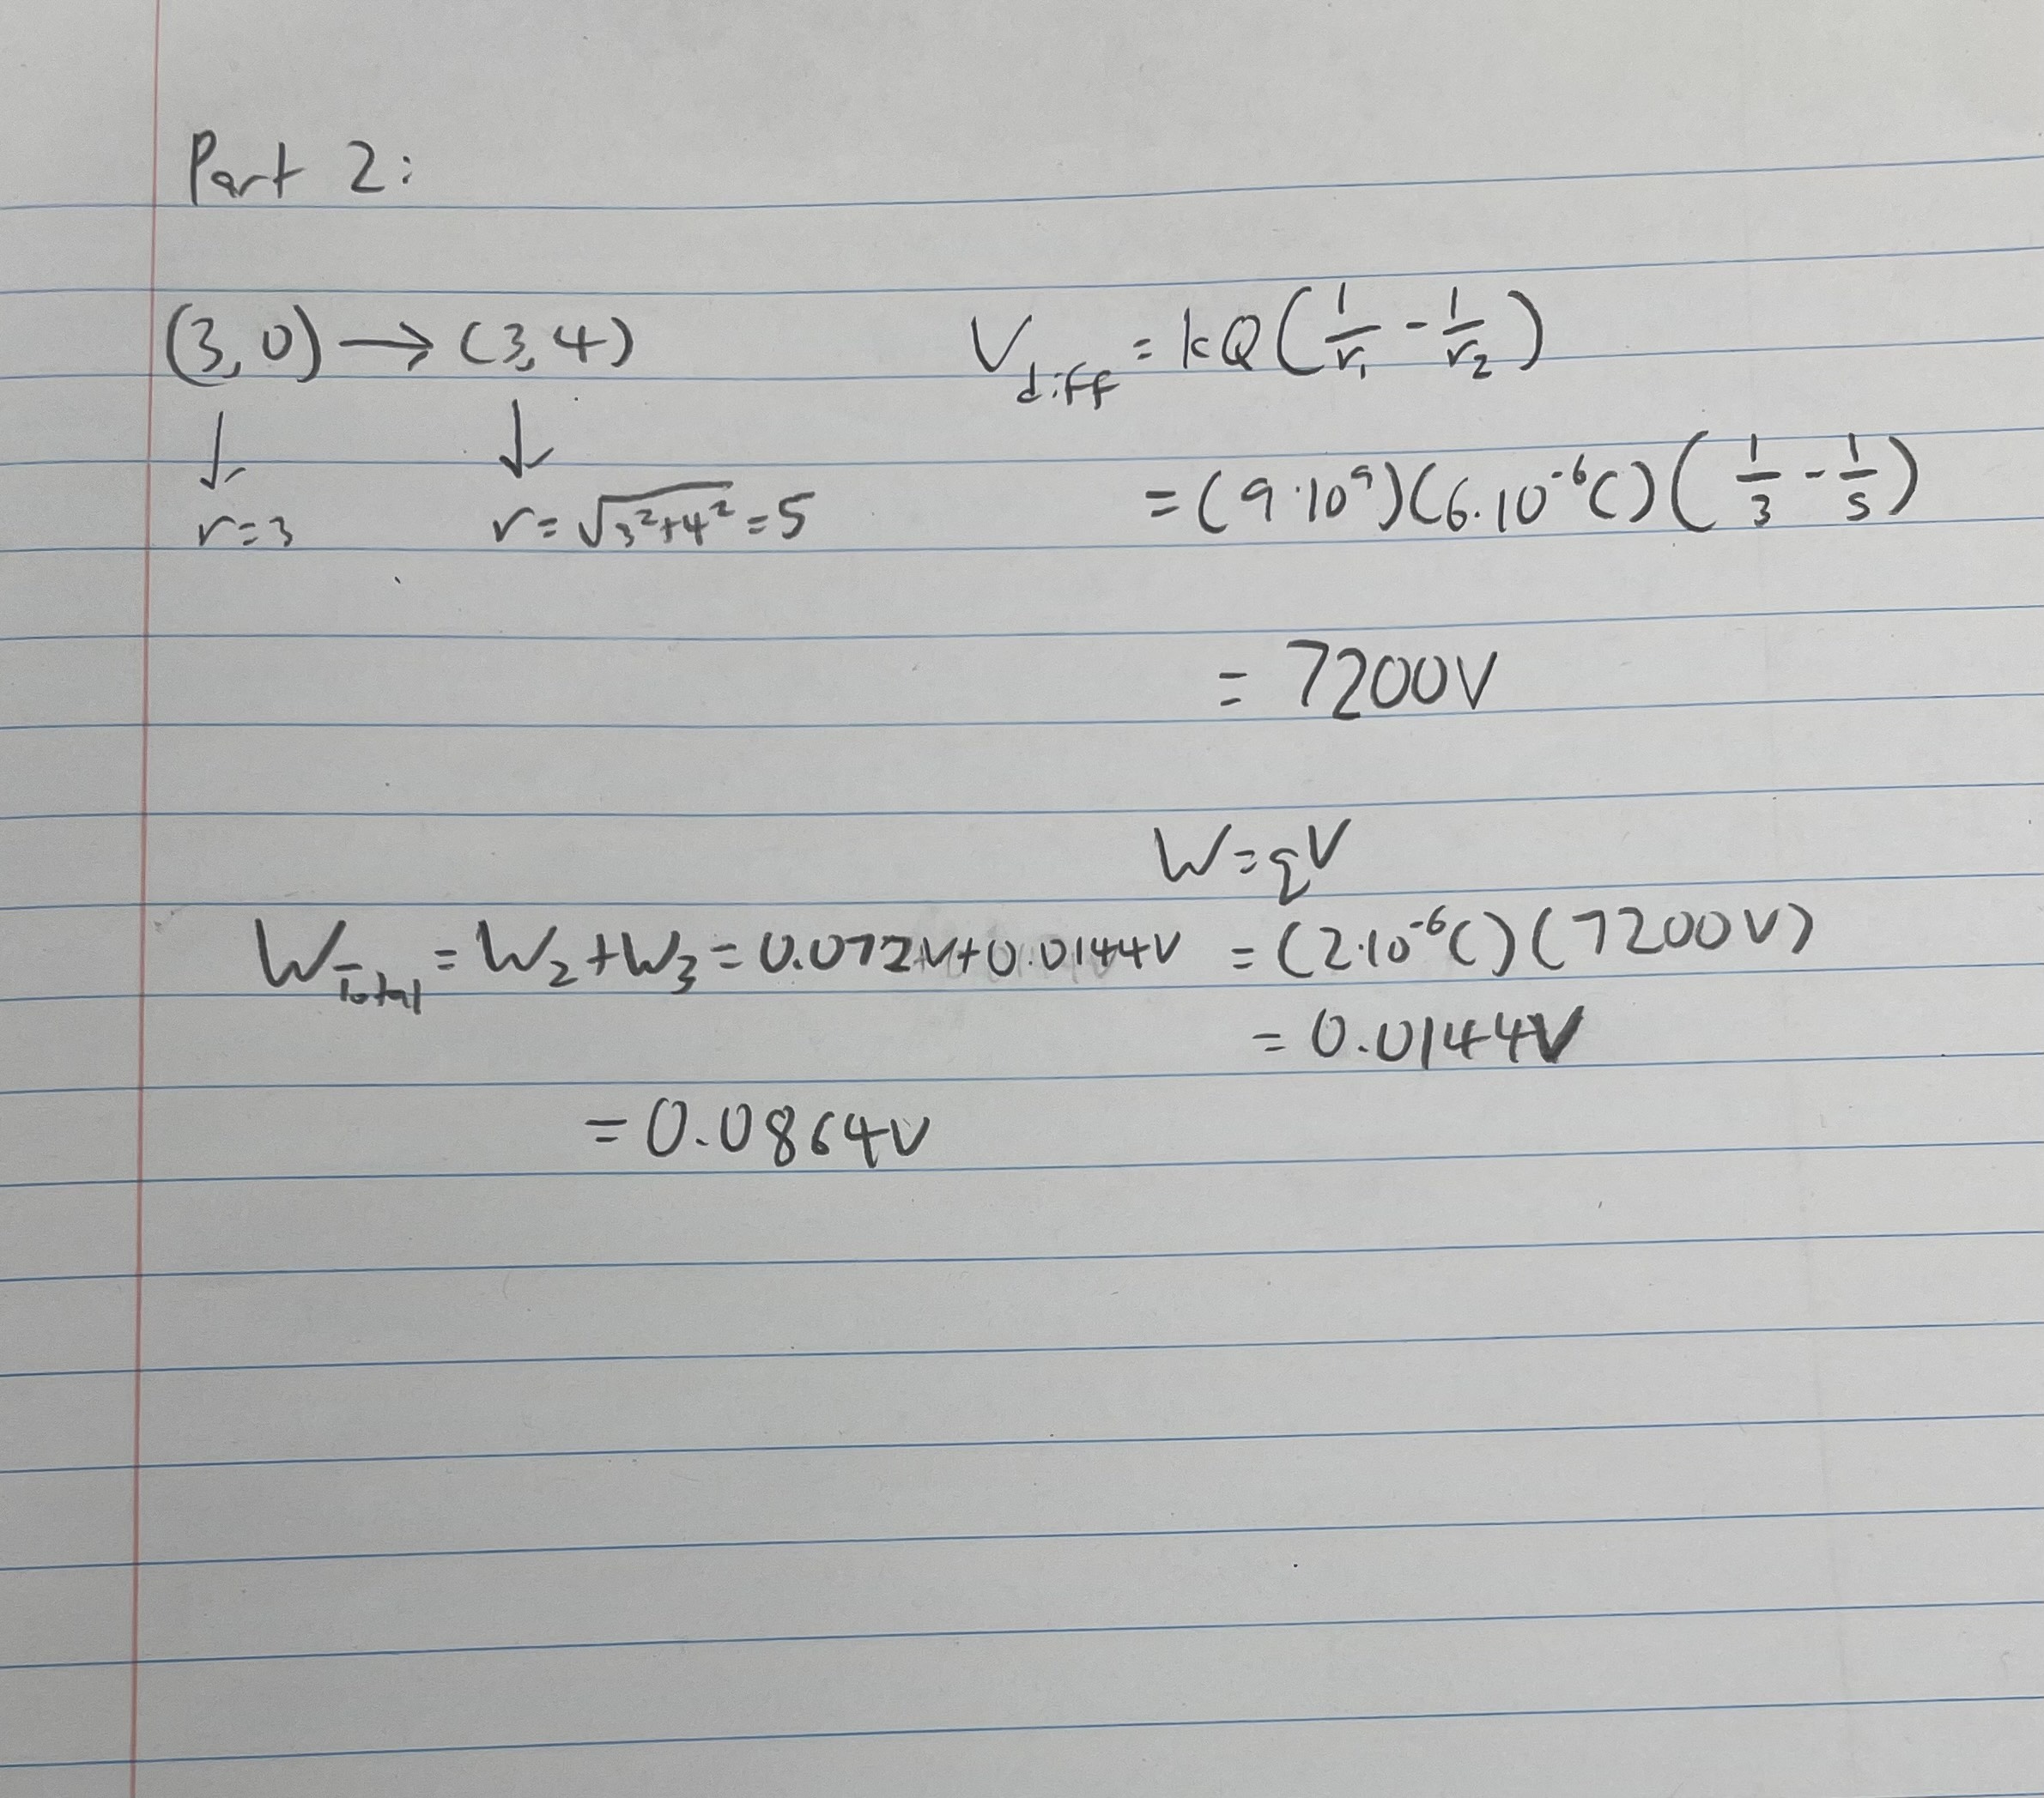 Part 2:
(3,0) → (3,4)
↓ ↓
r=3 r=√3²+4² =5
V_diff = kQ(1/r₁ - 1/r₂)
= (9·10⁹)(6·10⁻⁶C)(1/3 - 1/5)
= 7200V
W=qV
= (2·10⁻⁶C)(7200V)
= 0.0144V
W_Total = W₂+W₃ = 0.072V+0.0144V
= 0.0864V